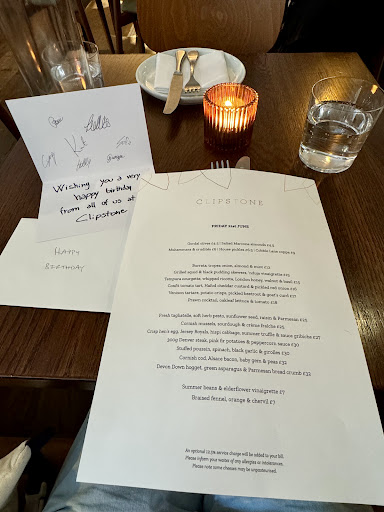 Wishing you a very
happy birthday
from all of us at
Clipstone
HAPPY
BIRTHDAY
CLIPSTONE
FRIDAY 21st JUNE
Gordal olives £4.5 | Salted Marcona almonds £4.5
Burrata, tropea onion, almond & mint £12
Grilled squid & black pudding skewers,
Tempura courgette, whipped ricotta, London honey, walnut & basil £15
Coal's tomato tart, Hafod cheddar custard &
Venison tartare, potato crisps, pickled beetroot & goat's curd £17
Prawn cocktail, oakleaf lettuce & tomato £18
Fresh tagliatelle, soft herb pesto, sunflower seed, raisin & Parmesan £25
Cornish mussels, sourdough & crème fraîche £25
Crisp hen's egg, Jersey Royals, hispi cabbage, summer truffle & sauce gribiche £27
300g Denver steak, pink fir potatoes & peppercorn sauce £30
Stuffed poussin, spinach, black garlic & girolles £30
Cornish cod, Alsace bacon, baby gem & peas £32
Devon Down hogget, green asparagus & Parmesan bread crumb £33
Summer beans & elderflower vinaigrette £7
Braised fennel, orange & chervil £7
An optional 12.5% service charge will be added to your bill.
Please inform your waiter of any allergies or intolerances.
Please note some cheeses may be unpasteurised.